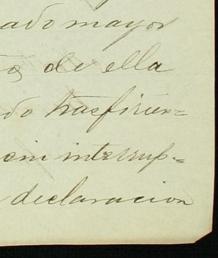 ado mayor
de ella
do trasfirien=
sin interrup-=
declaracion